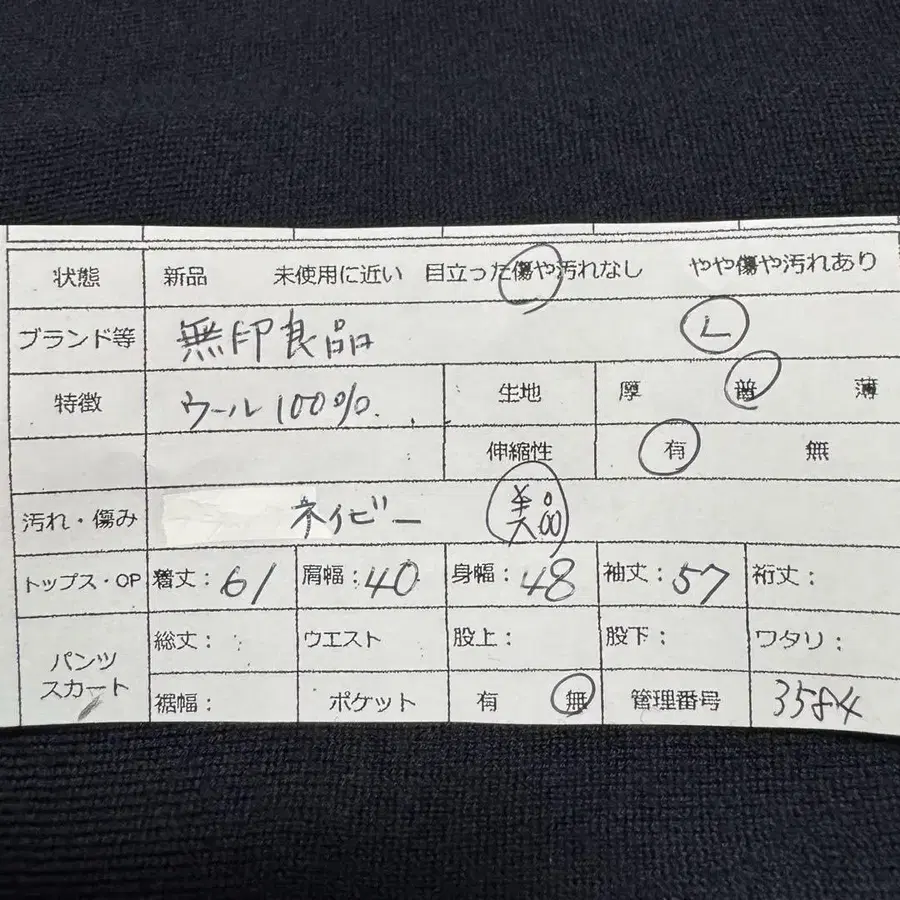 状態 新品 未使用に近い 目立った傷や汚れなし やや傷や汚れあり
ブランド等 無印良品 L
特徴 ウール100%. 生地 厚 普 薄
伸縮性 有 無
汚れ・傷み ネイビー 美品
トップス・OP 着丈：61 肩幅：40 身幅：48 袖丈：57 裄丈：
パンツ スカート 総丈： ウエスト 股上： 股下： ワタリ：
裾幅： ポケット 有 無 管理番号 3584